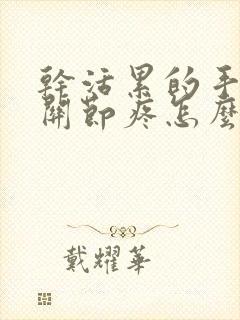 幹活累的手
關節疼怎麼
戴耀華